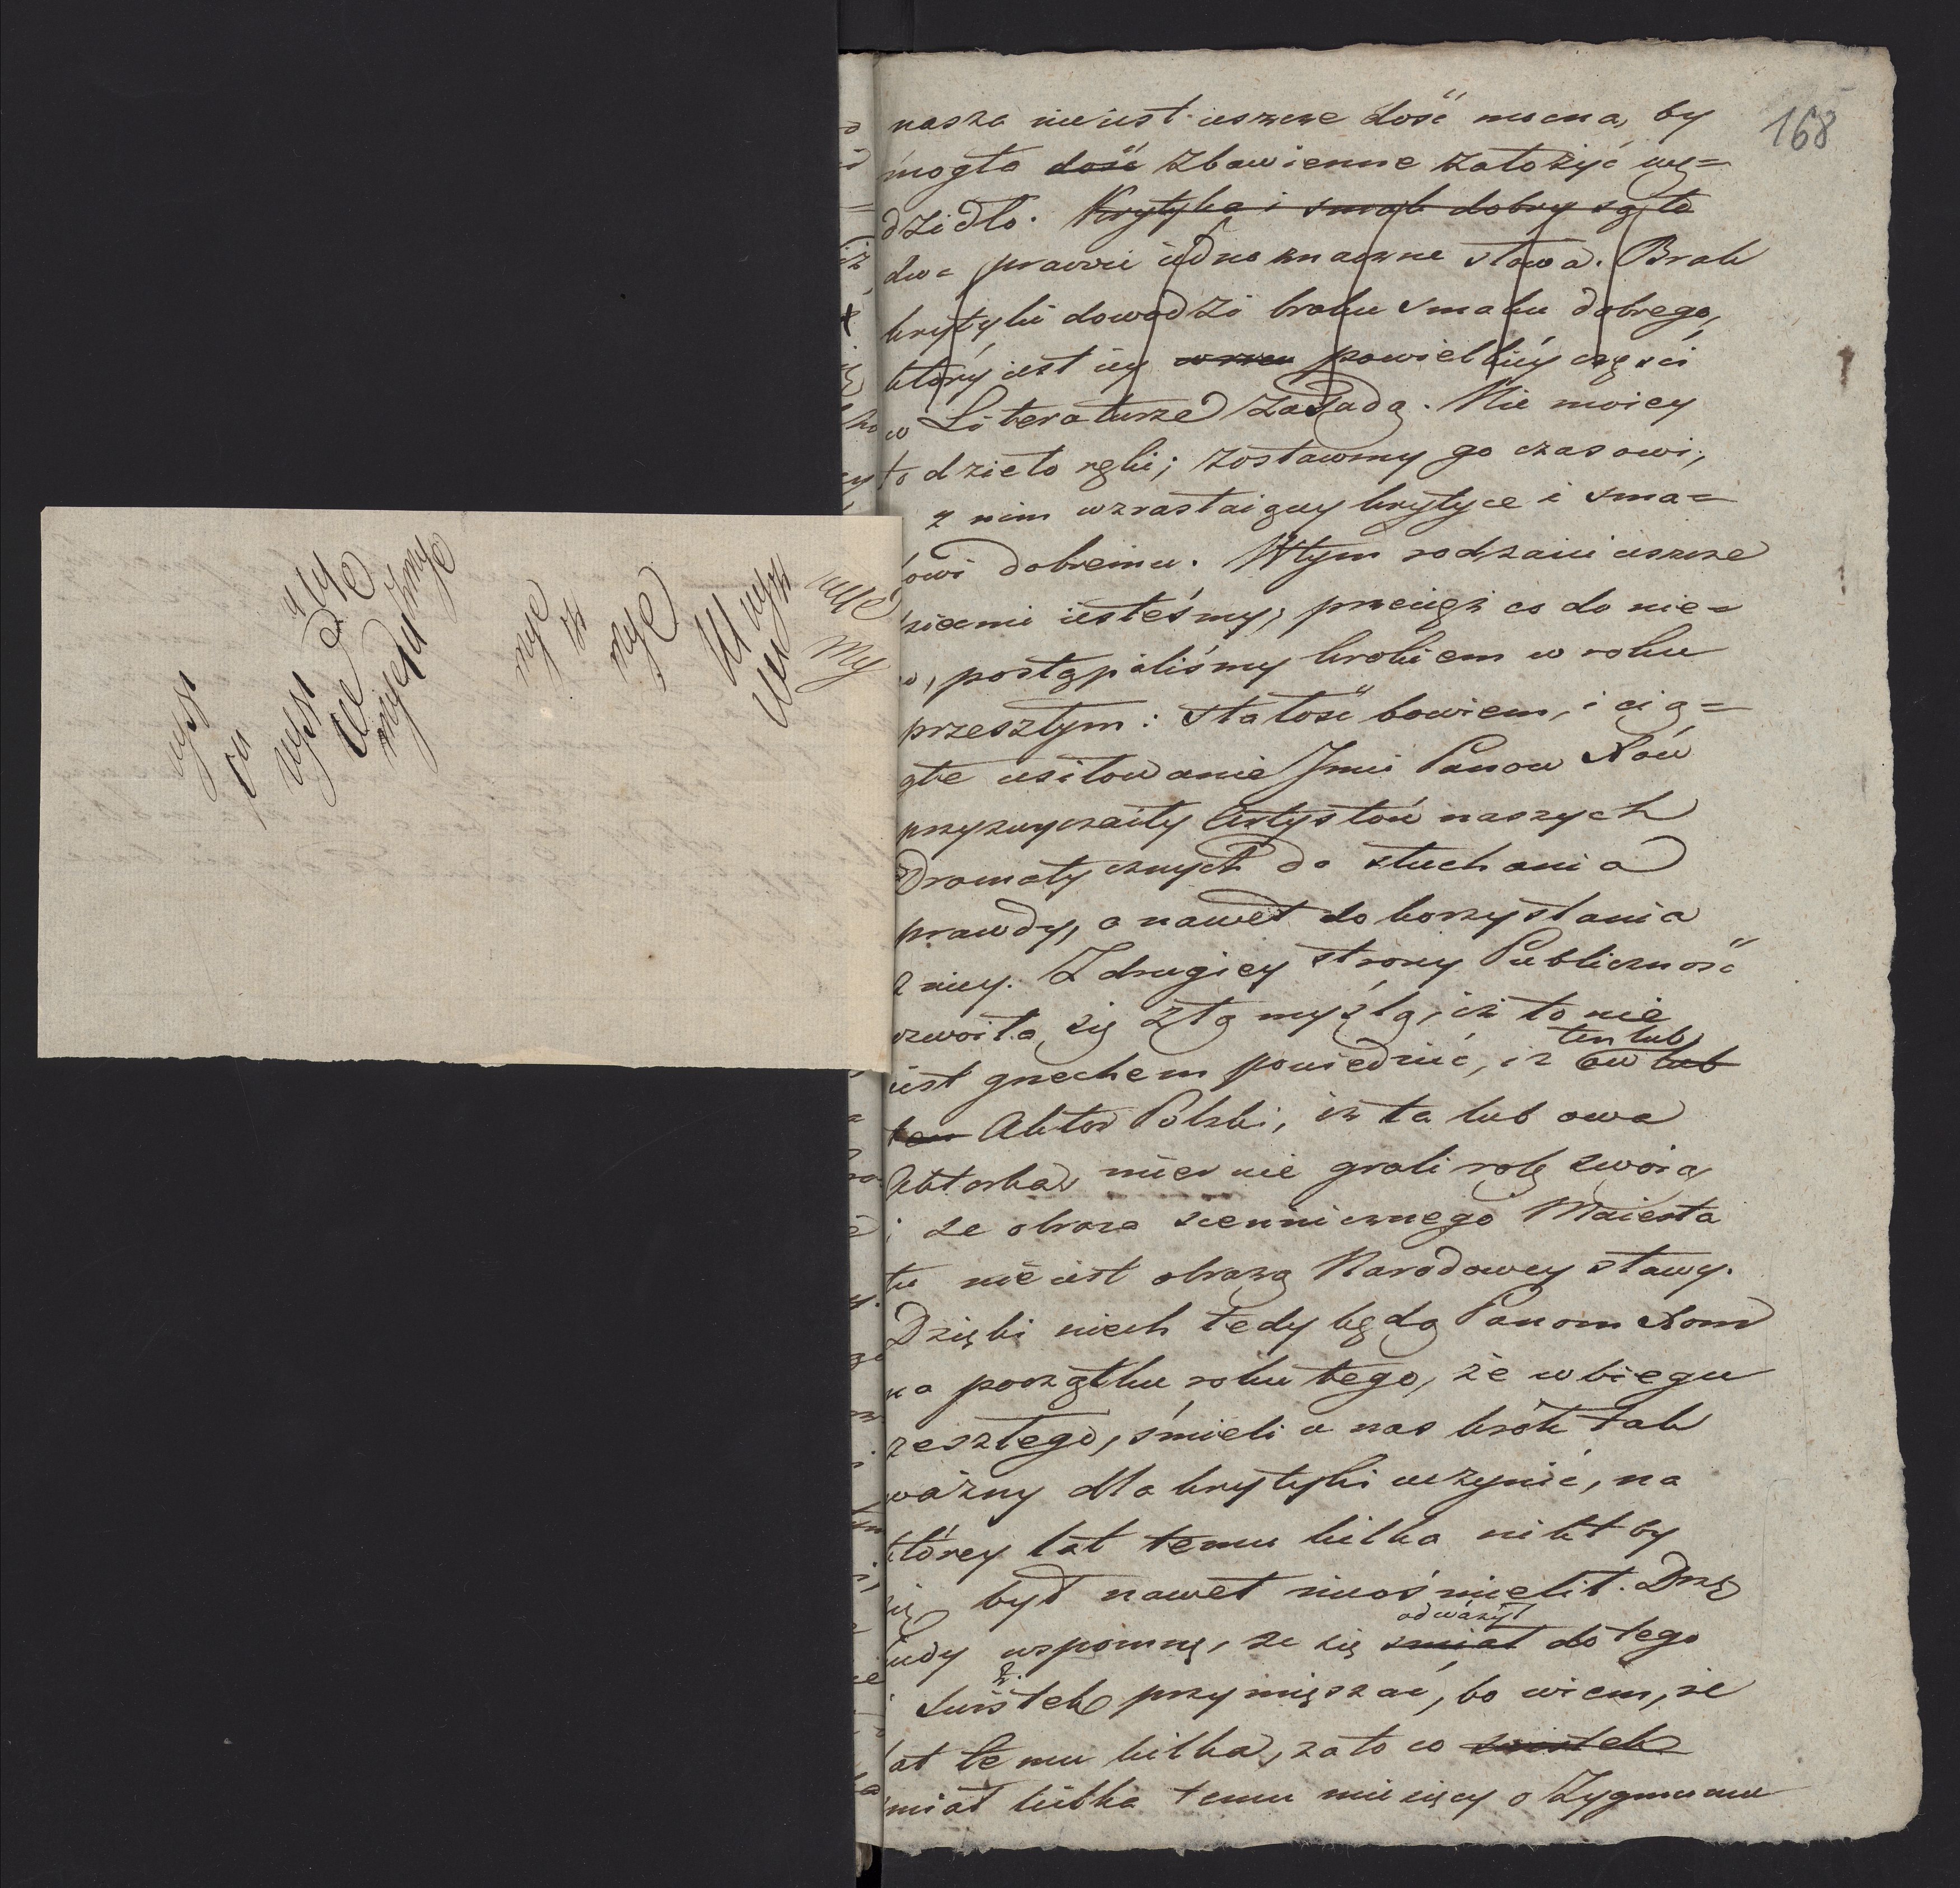 168
nasza nie iest ieszcze dość mocna, by
mogła dość zbawienne założyć wę=
dzidło. Krytyka i smak dobry są to
dwa prawie iednoznaczne słowa. Brak
krytyki dowodzi braku smaku dobrego,
który iest iey powielkiéy części
w Literaturze zasadą. Nie moiey
to dzieło ręki; zostawmy go czasowi,
z nim wzrastaiącey krytyce i sma=
kowi dobremu. W tym rodzaiu ieszcze
dziećmi iesteśmy, przecięż co do nie=
go, postąpiliśmy krokiem w roku
przeszłym: stałość bowiem, i cią=
głe usiłowanie Jmci Panow Xów
przyzwyczaiły Artystów naszych
Dramatycznych do słuchania
prawdy, a nawet do korzystania
z niey. Z drugiey strony Publiczność
oswoiła się z tą myślą, iż to nie
iest grzechem powiedzieć, iż ten lub ów lub
ten Aktor Polski, iż ta lub owa
Aktorka, miernie grali rolę swoią
i że obraza scennicznego Maiesta
tu nie iest obrazą Narodowey sławy.
Dzięki niech tedy będą Panom Xom
na początku roku tego, że w biegu
zeszłego, śmieli u nas krok tak
ważny dla krytyki uczynić, na
którey lat temu kilka nikt by
się był nawet nieośmielił. Drżę
kiedy wspomnę, że się odważył śmiał do tego
i Świstek przymięszać, bo wiem, że
lat temu kilka, za to co świstek
śmiał kilka temu miesięcy o Zygmuncie